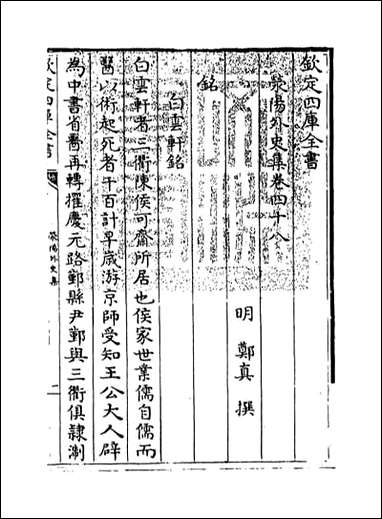 欽定四庫全書
滎陽外史集卷四十八
明 鄭真 撰
銘
白雲軒銘
白雲軒者三衢陳侯可齋所居也侯家世業儒自儒而
醫以術起死者千百計早歲游京師受知王公大人辟
為中書省醫再轉擢慶元路鄞縣尹鄞與三衢俱隸浙
欽定四庫全書
滎陽外史集